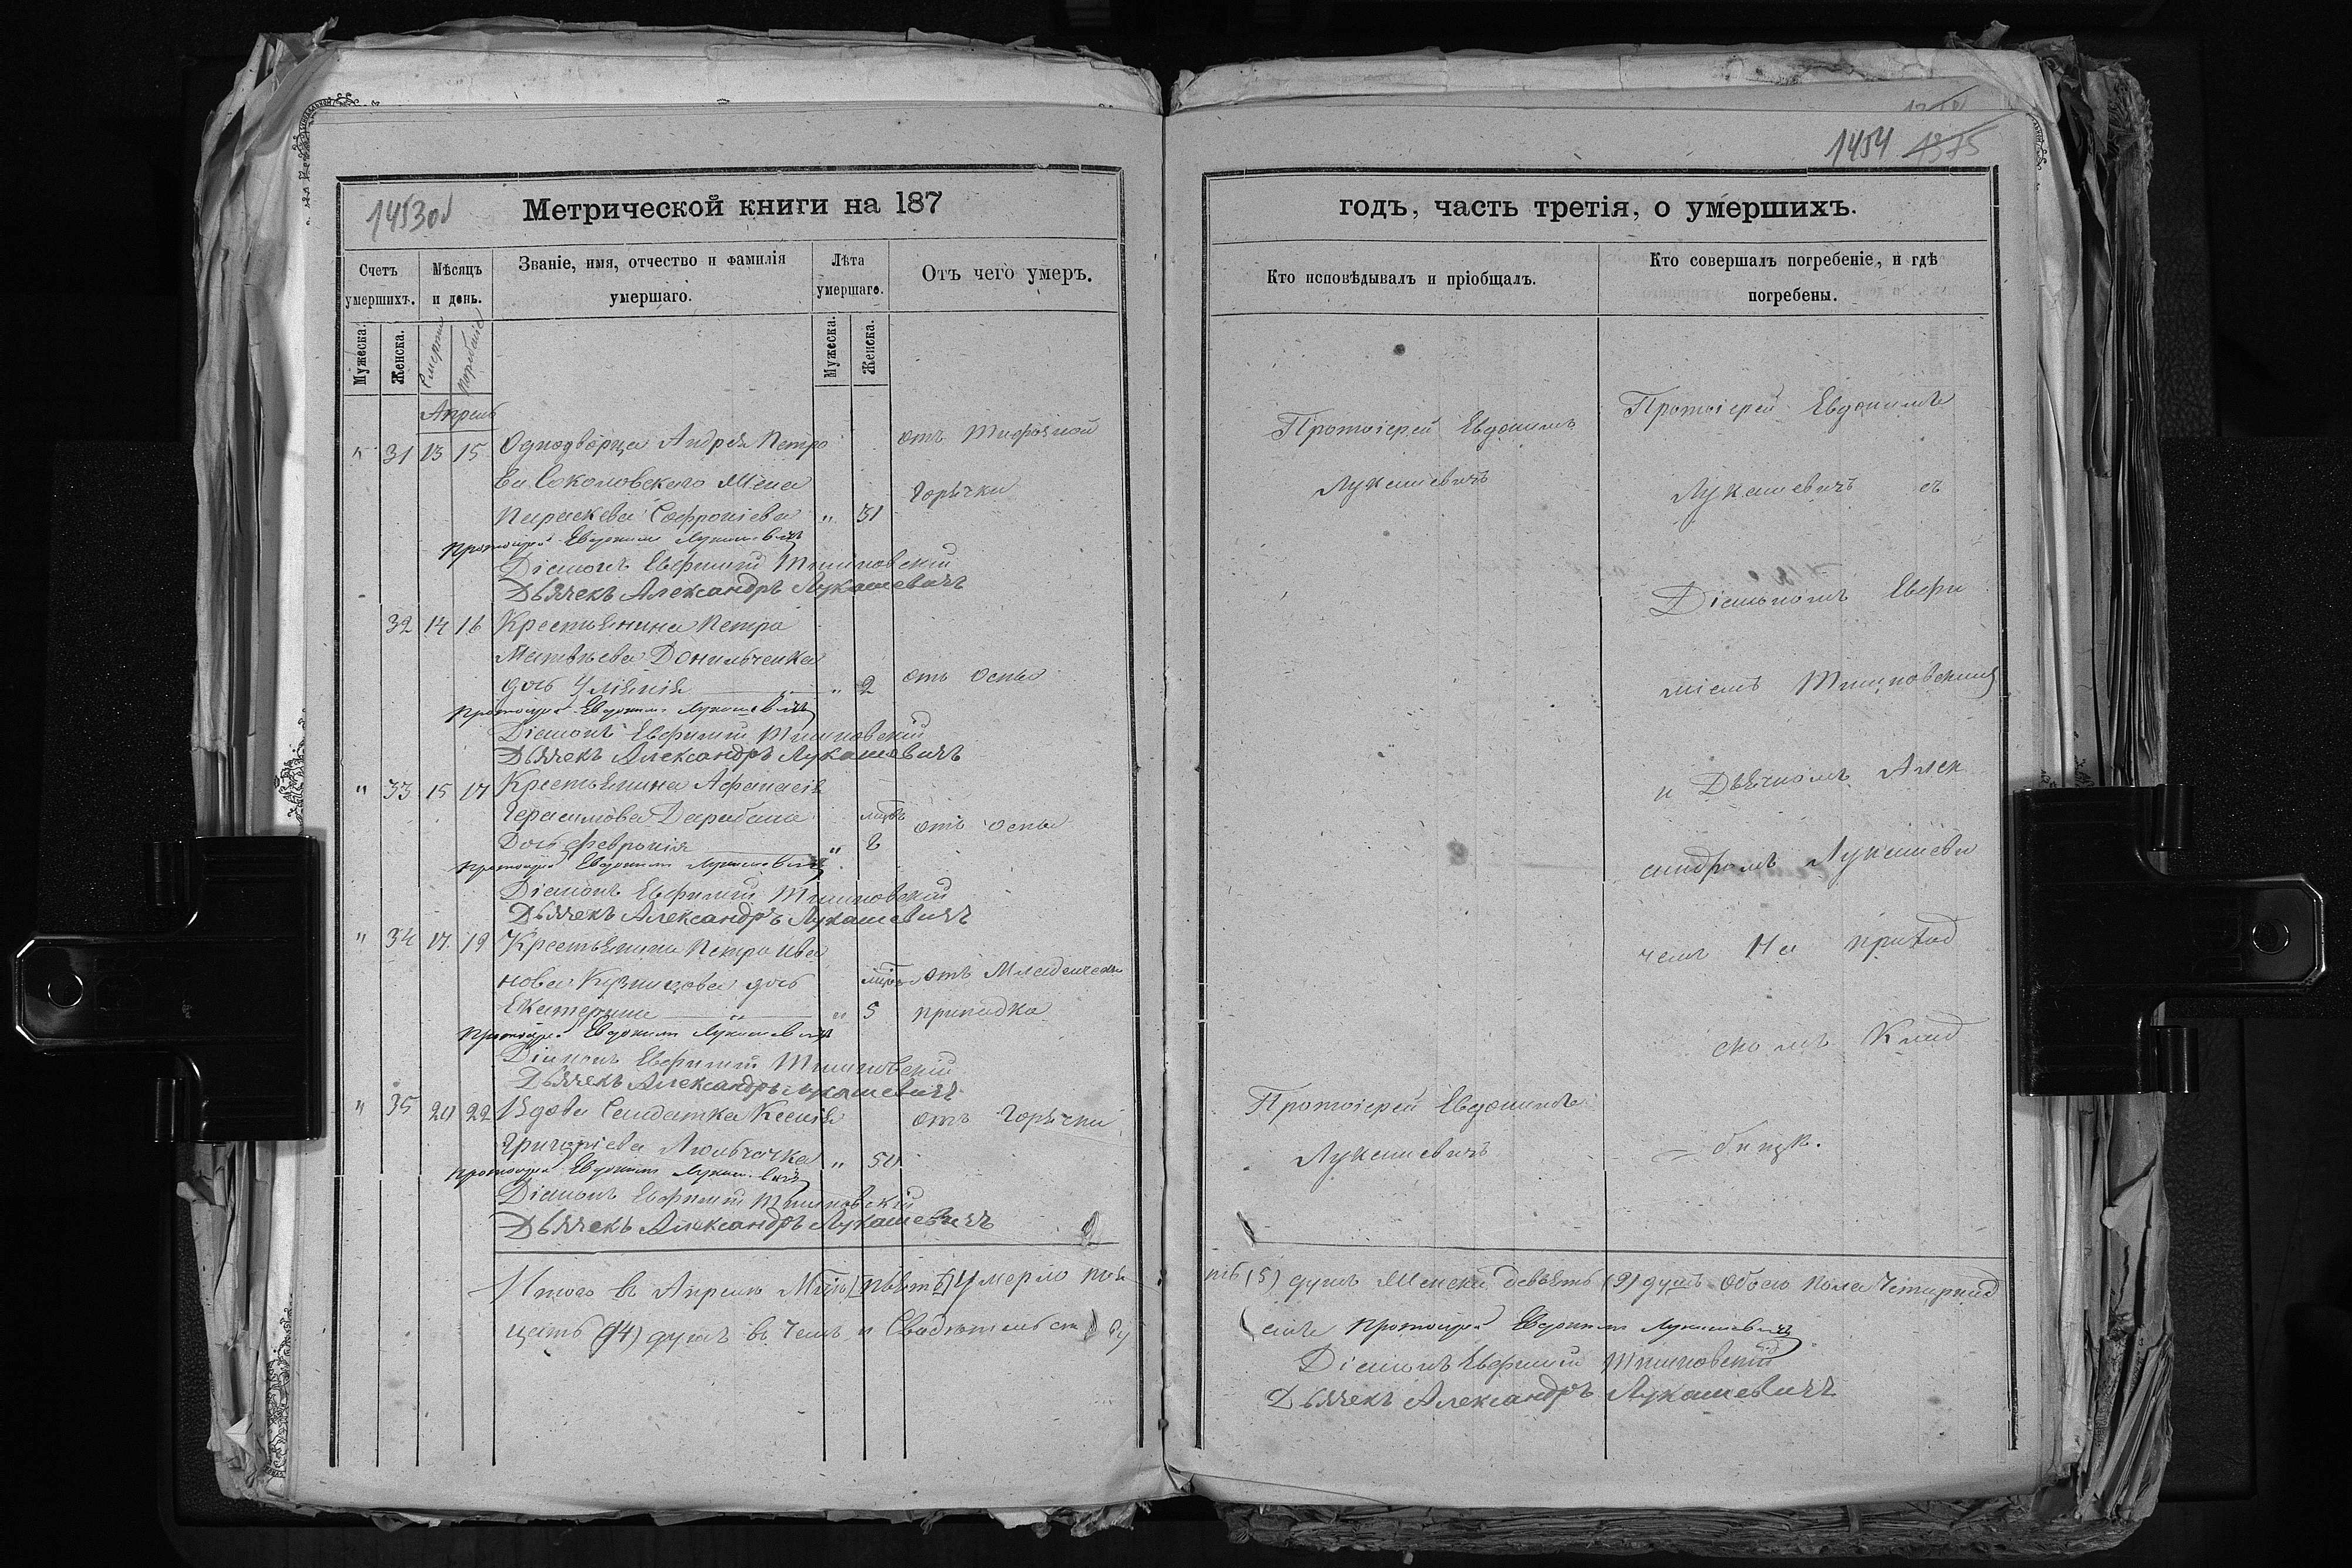 1453об
Метрической книги на 187
Счетъ умершихъ.
Мѣсяцъ и день.
Званіе, имя, отчество и фамилія умершаго.
Лѣта умершаго.
Отъ чего умеръ.
Мужеска.
Женска.
Смерти
Погребенія
Мужеска.
Женска.
Апрель
" 31 13 15 Однодворца Андрея Петро
отъ Тифозной
ва Соколовскаго Жена
горячки
Параскева Софроніева " 51
Протоіерей Евдокимъ Лукашевичъ
Діаконъ Евфимій Тишковскій
Дьячекъ Александръ Лукашевичъ
32 14 16 Крестьянина Петра
Матвѣева Донильченка
дочь Уліянія " 2 отъ оспы
Протоіерей Евдокимъ Лукашевичъ
Діаконъ Евфимій Тишковскій
Дьячекъ Александръ Лукашевичъ
" 33 15 17 Крестьянина Афанасія
Герасимова Барабаша мцвъ отъ оспы
Дочь Февронія " 8
Протоіерей Евдокимъ Лукашевичъ
Діаконъ Евфимій Тишковскій
Дьячекъ Александръ Лукашевичъ
" 34 17 19 Крестьянина Петра Ива
нова Кузнецова дочь мцвъ отъ Младенческ
Екатерина " " 5 припадка
Протоіерей Евдокимъ Лукашевичъ
Діаконъ Евфимій Тишковскій
Дьячекъ Александръ Лукашевичъ
" 35 20 22 Вдова Солдатка Ксенія отъ Горячки
Григоріева " 50
Протоіерей Евдокимъ Лукашевичъ
Діаконъ Евфимій Тишковскій
Дьячекъ Александръ Лукашевичъ
Итого въ Апрелѣ Умерло
(14) душъ въ чемъ и Свидѣтельст ву
1454 1375
годъ, часть третія, о умершихъ.
Кто исповѣдывалъ и пріобщалъ.
Кто совершалъ погребеніе, и гдѣ погребены.
Протоіерей Евдокимъ
Лукашевичъ
Протоіерей Евдокимъ
Лукашевичъ съ
Діакономъ Евфи
міемъ Тишковскимъ
и Дьячкомъ Алек
сандромъ Лукашеви
чемъ На приход
скомъ Клад
бищѣ.
Протоіерей Евдокимъ
Лукашевичъ
(5) душъ Женска девять (9) душъ обоего пола Четырнад
Протоіерей Евдокимъ Лукашевичъ
Діаконъ Евфимій Тишковскій
Дьячекъ Александръ Лукашевичъ